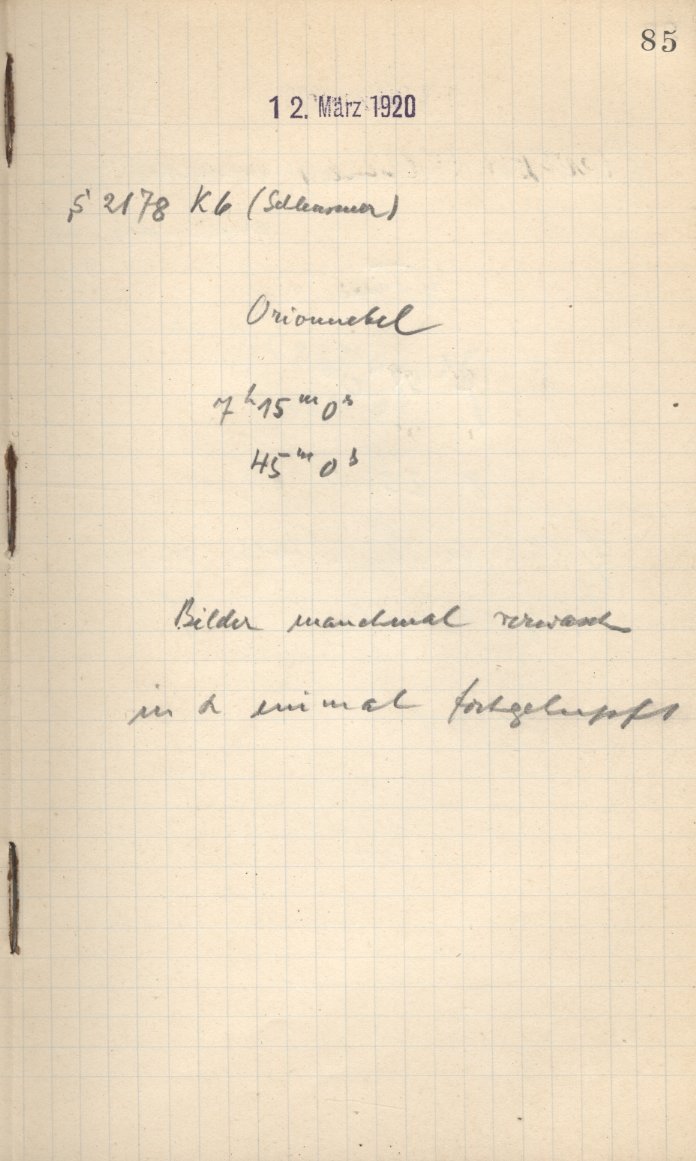 85
12. März 1920
S 2178 K6 (Schleussner)
Orionnebel
7ʰ15ᵐ0ˢ
45ᵐ0ˢ
Bilder manchmal verwasch
in α einmal fortgehupft